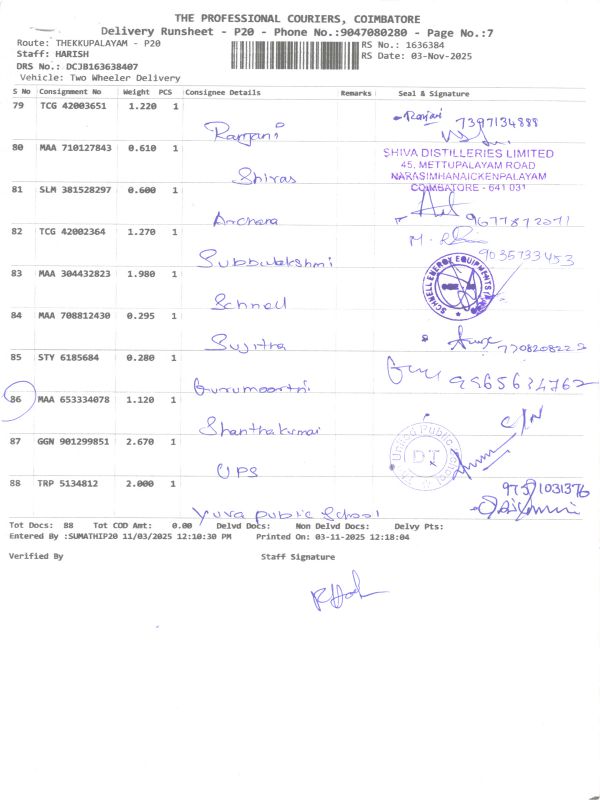 THE PROFESSIONAL COURIERS, COIMBATORE
Delivery Runsheet - P20 - Phone No.:9047080280 - Page No.:7
Route: THEKKUPALAYAM - P20
Staff: HARISH
DRS No.: DCJB163638407
Vehicle: Two Wheeler Delivery
RS No.: 1636384
RS Date: 03-Nov-2025
S No Consignment No Weight PCS Consignee Details Remarks Seal & Signature
79 TCG 42003651 1.220 1
Ranjani Ranjani 7397134888
80 MAA 710127843 0.610 1
SHIVA DISTILLERIES LIMITED
45, METTUPALAYAM ROAD
NARASIMHANAICKENPALAYAM
COIMBATORE - 641 031
Shivas
81 SLM 381528297 0.600 1
Archana
82 TCG 42002364 1.270 1
9035733453
Subbulakshmi
83 MAA 304432823 1.980 1
SCHNELL ENERGY EQUIPMENTS
Schnell
84 MAA 708812430 0.295 1
Sujitha
85 STY 6185684 0.280 1
Gurumoorthi
86 MAA 653334078 1.120 1
Shanthakumai
87 GGN 901299851 2.670 1
United Public School
DT
UPS
88 TRP 5134812 2.000 1
Yuva public School
Tot Docs: 88 Tot COD Amt: 0.00 Delvd Docs: Non Delvd Docs: Delvy Pts:
Entered By :SUMATHIP20 11/03/2025 12:10:30 PM Printed On: 03-11-2025 12:18:04
Verified By Staff Signature